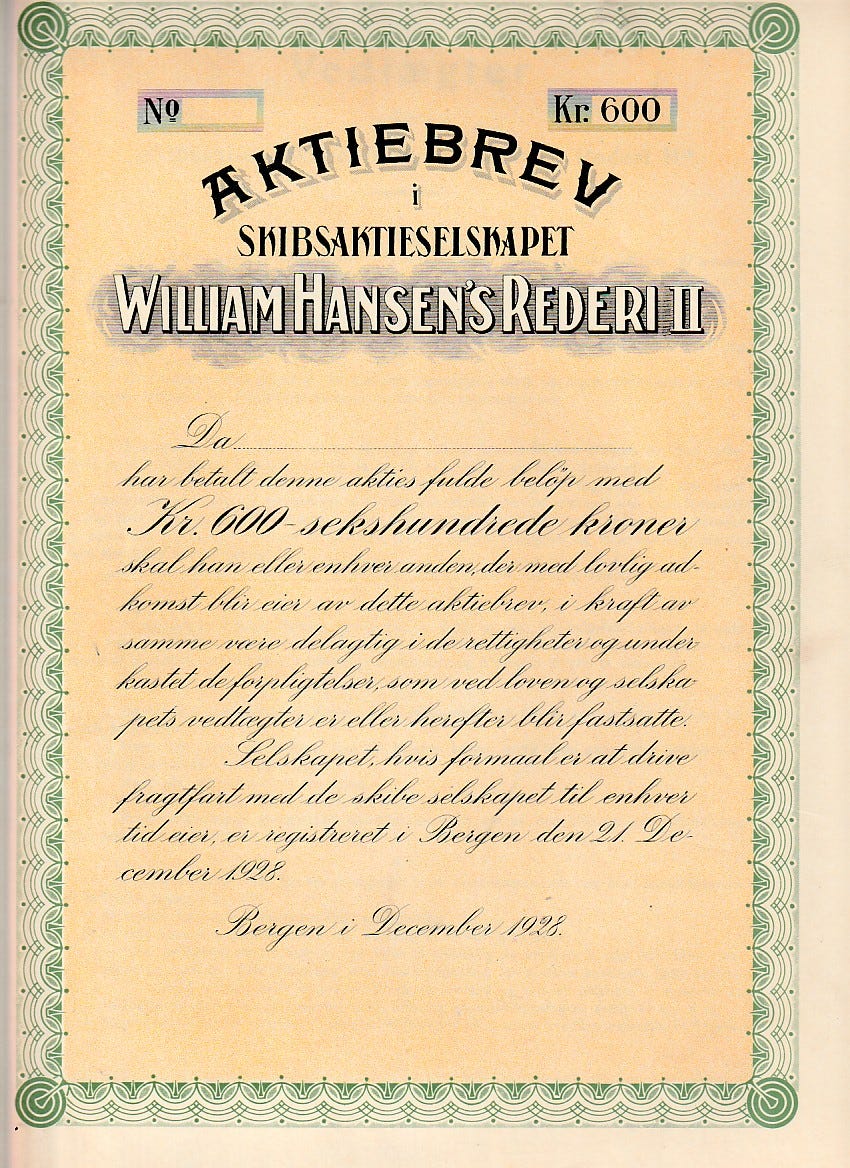 Nº
Kr. 600
AKTIEBREV
i
SKIBSAKTIESELSKAPET
WILLIAM HANSEN'S REDERI II
Da
har betalt denne akties fulde belöp med
Kr. 600 - sekshundrede kroner
skal han eller enhver anden, der med lovlig ad-
komst blir eier av dette aktiebrev, i kraft av
samme være delagtig i de rettigheter og under-
kastet de forpligtelser, som ved loven og selska-
pets vedtægter er eller herefter blir fastsatte.
Selskapet, hvis formaal er at drive
fragtfart med de skibe selskapet til enhver
tid eier, er registreret i Bergen den 21. De-
cember 1928.
Bergen i December 1928.